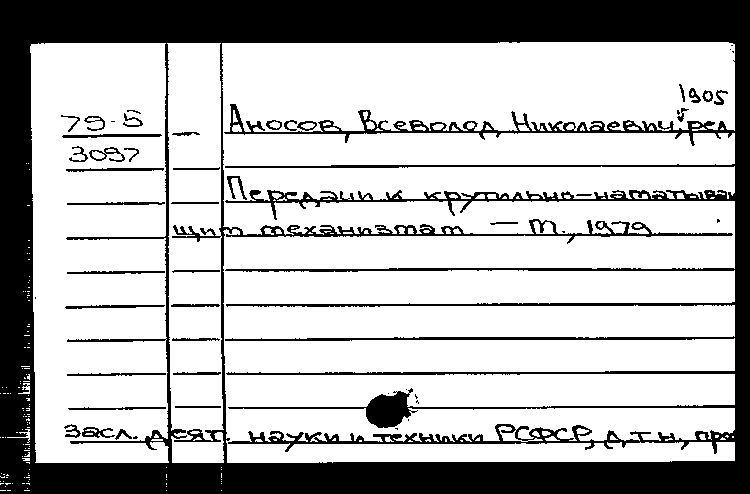 1905
79-5 — Аносов, Всеволод Николаевич, ред.
3097
Передачи к крутильно-наматываю
щим механизмам. — М., 1979
Засл. деят. науки и техники РСФСР, д.т.н., про